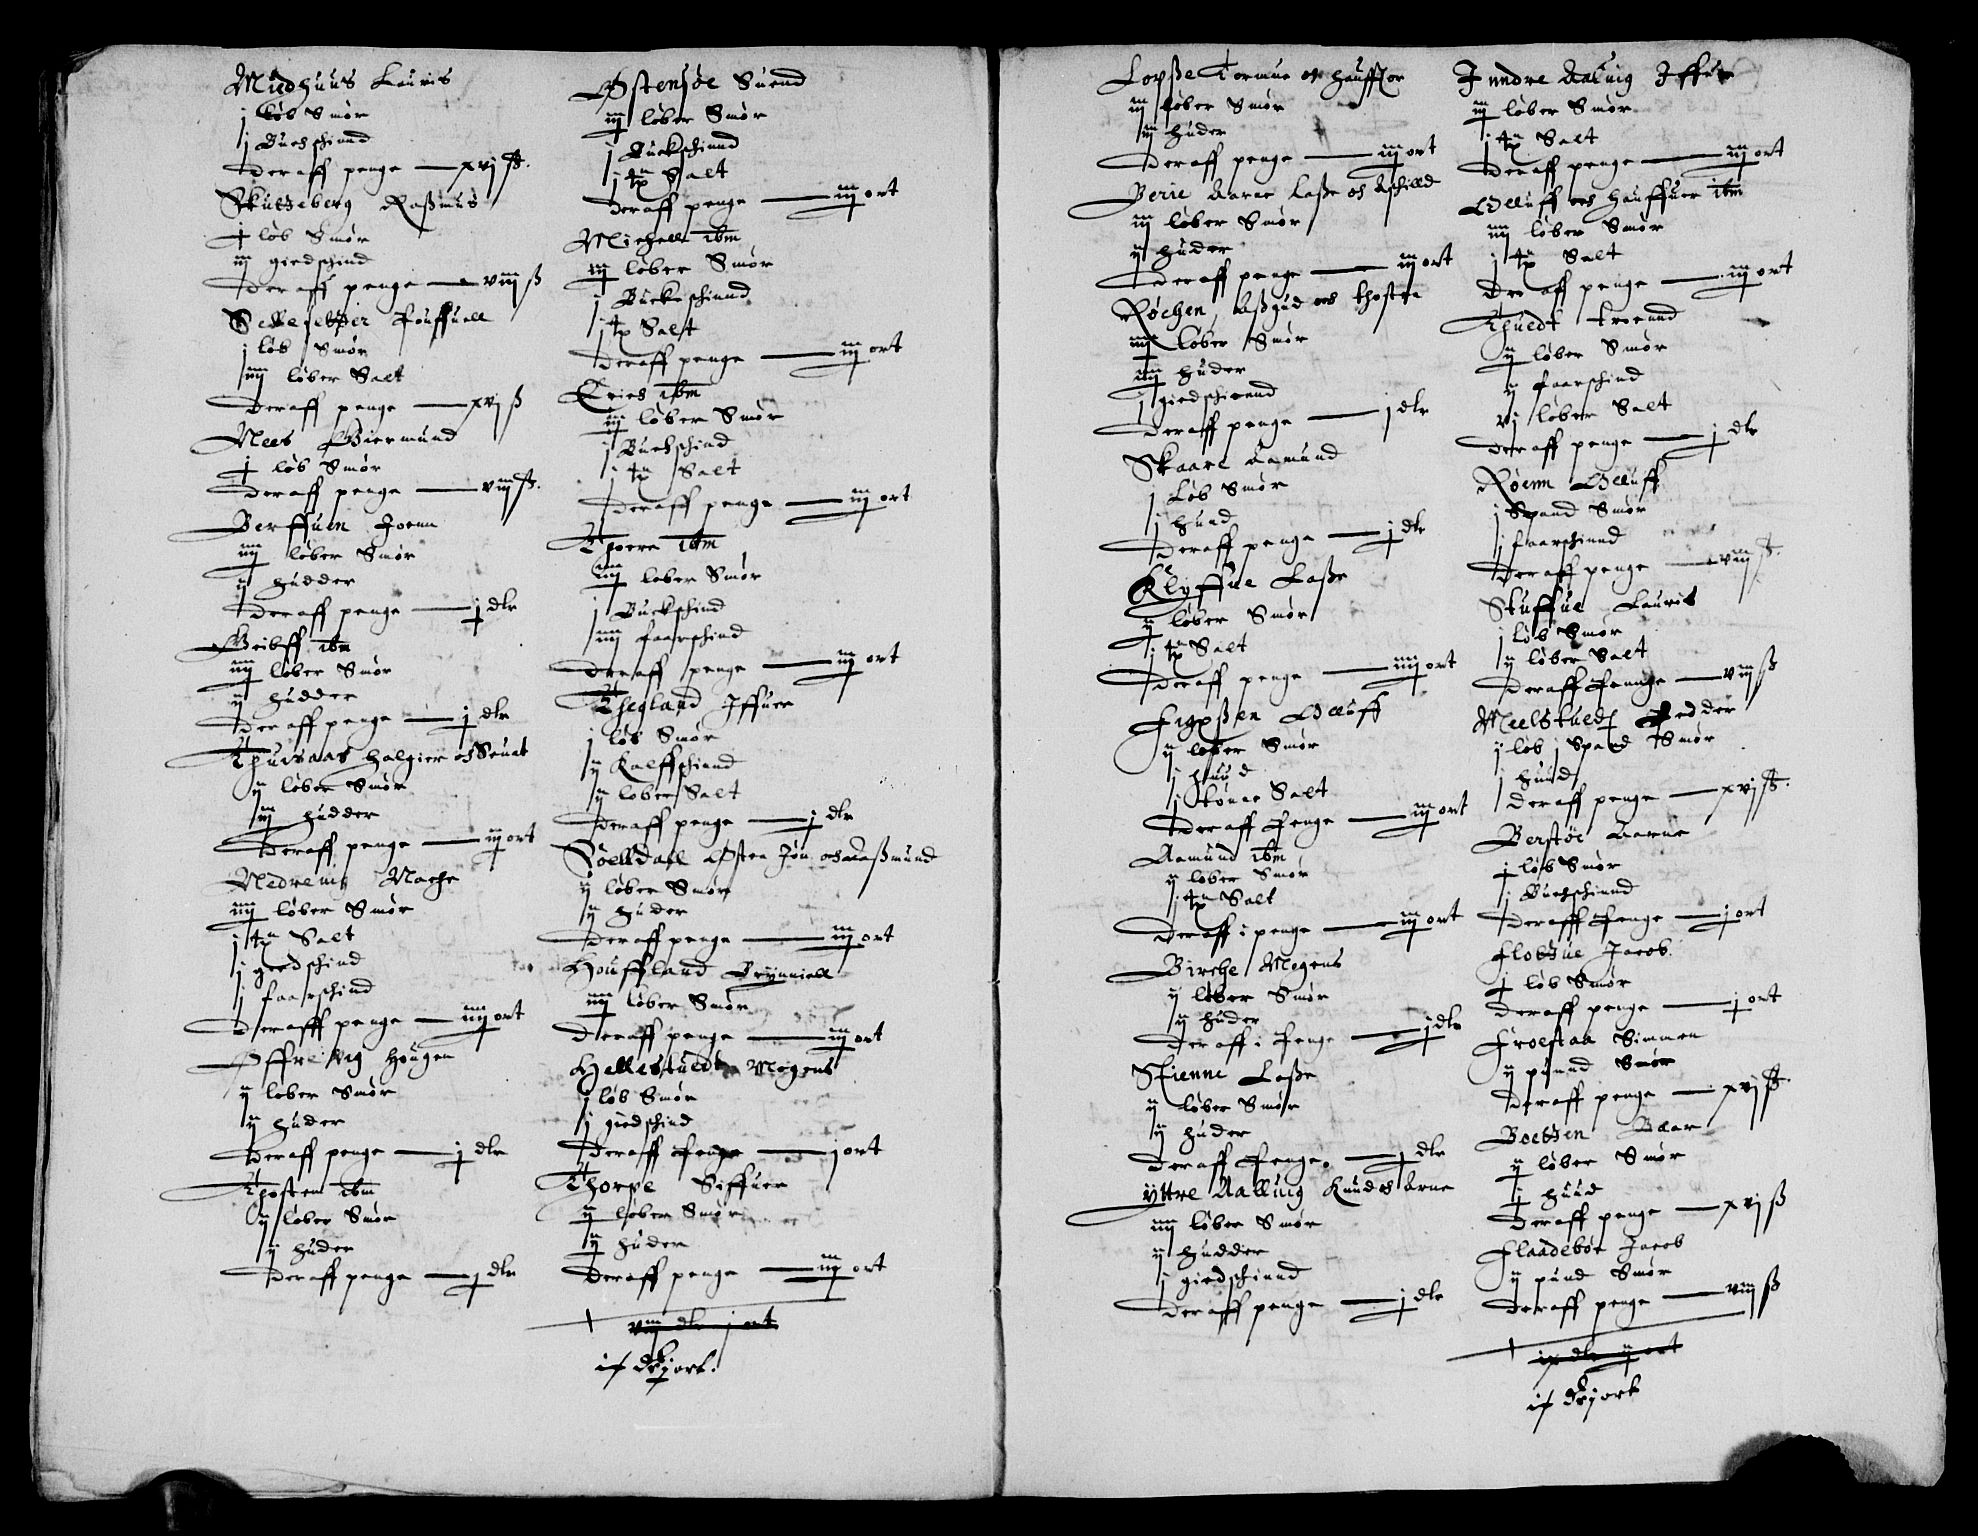 Mudhuus Lauris
j løb Smør
j Buchschinnd
Deraff penge — xvj ß.
Skutteberg Raßmus
j løb Smør
iij giedschind
Deraff penge — viij ß
Jouffuell
j løb Smør
iiij løber Salt
Deraff penge — xvj ß
Nees Giermund
j løb Smør
Deraff penge — viij ß.
Berffuen Joenn
iiij løber Smør
ij hudder
Deraff penge — j dlr
ibm
iiij løber Smør
ij hudder
Deraff penge — j dlr
Thueraas Halgier och
ij løber Smør
iij hudder
Deraff penge — iij ort
Nedre
iiij løber Smør
j tø Salt
j giedschind
j faarschind
Deraff penge — iiij ort
Øffre Vig Hougen
ij løber Smør
ij huder
Deraff penge — j dlr
Thosten ibm
ij løber Smør
ij huder
Deraff penge — j dlr
Østensøe Suend
iij løber Smør
j Buckschinnd
j tø Salt
Deraff penge — iij ort
Michell ibm
iij løber Smør
j Buckschinnd
j tø Salt
Deraff penge — iij ort
Erich ibm
iij løber Smør
j Buchschind
j tø Salt
Deraff penge — iij ort
Thoere ibm
iiij løber Smør
j Buckschind
iiij faarschind
Deraff penge — iij ort
Thegland Iffuer
j løb Smør
ij Kalffschinnd
ij løber Salt
Deraff penge — j dlr
Østen Jøn och Aaßmund
ij løber Smør
ij huder
Deraff penge — iij ort
Houffland Brynniell
iiij løber Smør
Deraff penge — iij ort
Hellestuedt Mogens
j løb Smør
j giedschind
Deraff Penge — j ort
Thorpe Siffuer
ij løber Smør
ij huder
Deraff penge — iij ort
viij dlr j ort
ix dlr j ort.
Tormue och
iij løber Smør
iij huder
Deraff penge — iij ort
Berie Aarne Laße och Aschilld
iij løber Smør
ij huder
Deraff penge — iij ort
Røchen, Aßgud och Thosten
iiij løber Smør
iiij huder
j giedschinnd
Deraff penge — j dlr
Skaare Aamund
j Løb Smør
j hund
Deraff penge — j dlr
Klyffue Laße
ij løber Smør
j tø Salt
Deraff penge — iiij ort
Oelluff
ij løber Smør
j huud
j tønne Salt
Deraff Penge — iij ort
Aamund ibm
ij løber Smør
j tø Salt
Deraff i penge — iij ort
Birche Mogens
ij løber Smør
ij huder
Deraff i Penge — j dlr
Stienne Laße
ij løber Smør
ij huder
Deraff Penge. — j dlr
Yttre Aalluig Knud och Arne
iiij løber Smør
ij hudder
j giedschinnd
Deraff penge — j dlr
Inndre Aaluig Iffuer
iij løber Smør
j tø Salt
Deraff penge — iij ort
Oelluff och Hauffuer ibm
iiij løber Smør
j tø Salt
Deraff penge — iij ort
Thuedt Troennd
ij løber Smør
ij faarschind
vj løber Salt
Deraff penge — j dlr
Røenn Oelluff
j Spand Smør
j faarschinnd
Deraff penge — viij ß.
Skuffue Lauris
j løb Smør
ij løber Salt
Deraff Pennge — viij ß
Meelstuedt Pedder
j løb j Spand Smør
j huud
Deraff penge — xvj ß.
Berstøe Aarne
j løb Smør
j Buchschinnd
Deraff Penge — j ort
Flottue Jacob
j løb Smør
Deraff penge — j ort
Froestaa Simmen
ij pund Smør
Deraff penge — xvj ß.
Botten
ij løber Smør
j huud
Deraff penge — xvj ß
Flaadebøe Jacob
ij pund Smør
Deraff penge — viij ß
ix dlr ij ort
ix dlr j ort